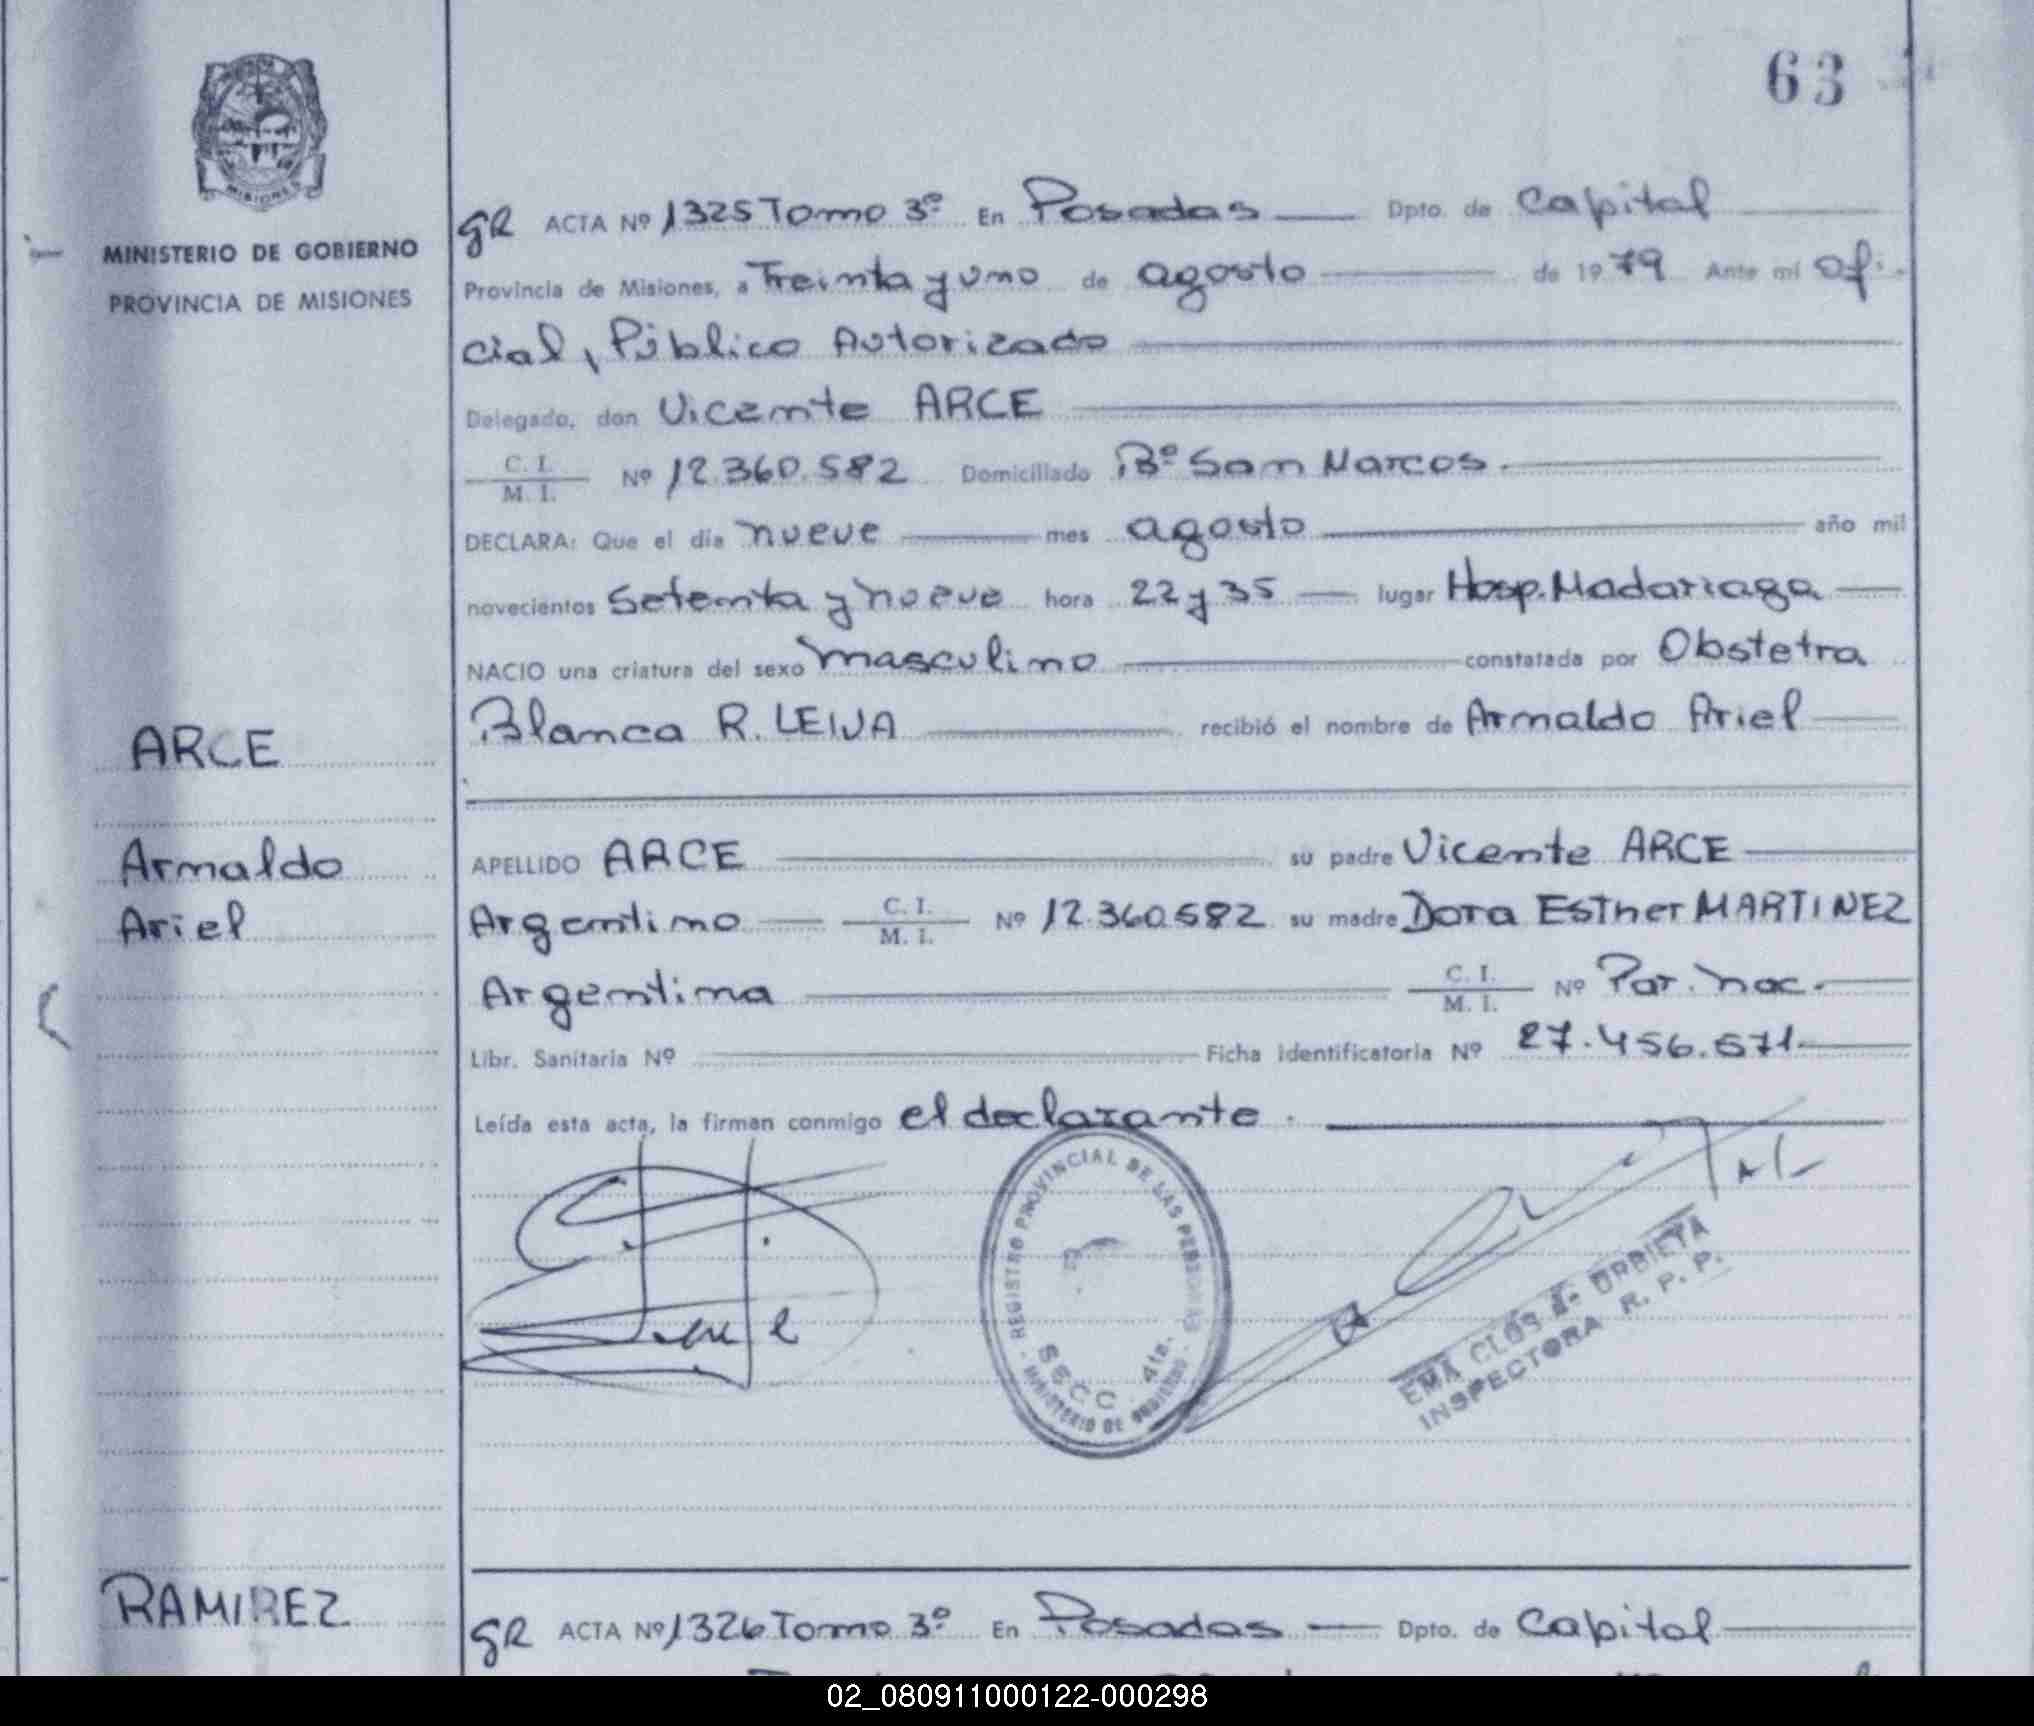 63
MISIONES
MINISTERIO DE GOBIERNO
PROVINCIA DE MISIONES
gR ACTA Nº 1325 Tomo 3º En Posadas Dpto. de Capital
Provincia de Misiones, a Treinta y uno de agosto de 1979 Ante mi ofi
cial, Público Autorizado
Delegado, don Vicente ARCE
C. I. / M. I. Nº 12.360.582 Domiciliado Bº San Marcos.
DECLARA: Que el día nueve mes agosto año mil
novecientos setenta y nueve hora 22 y 35 lugar Hosp. Madariaga
NACIO una criatura del sexo masculino constatada por Obstetra
Blanca R. LEIVA recibió el nombre de Arnaldo Ariel
ARCE
Arnaldo
Ariel
APELLIDO ARCE su padre Vicente ARCE
Argentino C. I. / M. I. Nº 12.360.582 su madre Dora Esther MARTINEZ
Argentina C. I. / M. I. Nº Par. nac.
Libr. Sanitaria Nº Ficha identificatoria Nº 27.456.571
Leída esta acta, la firman conmigo el declarante.
REGISTRO PROVINCIAL DE LAS PERSONAS
SECC. 4ta.
MINISTERIO DE GOBIERNO
EMA CLOS de URBIETA
INSPECTORA R. P. P.
RAMIREZ
gR ACTA Nº 1326 Tomo 3º En Posadas Dpto. de Capital
02_080911000122-000298